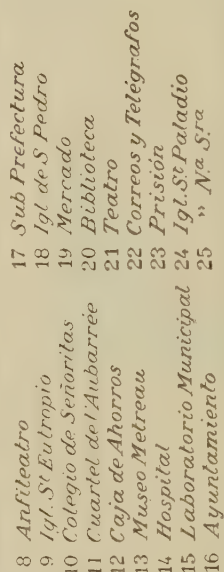 8 Anfiteatro
9 Igl. St Eutropio
10 Colegio de Señoritas
11 Cuartel de l'Aubarrée
12 Caja de Ahorros
13 Museo Metreau
14 Hospital
15 Laboratorio Municipal
16 Ayuntamiento
17 Sub Prefectura
18 Igl de S Pedro
19 Mercado
20 Biblioteca
21 Teatro
22 Correos y Telégrafos
23 Prisión
24 Igl. St Paladio
25 " N.ª S.ra